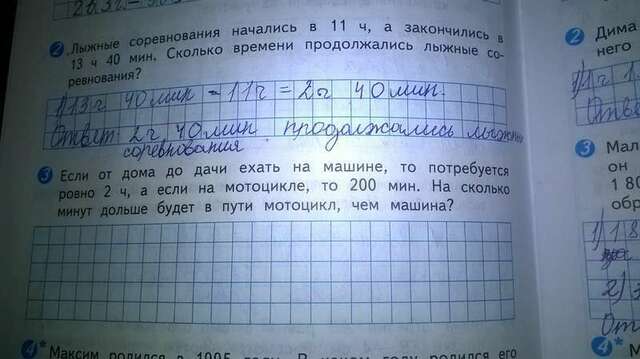 2 Лыжные соревнования начались в 11 ч, а закончились в
13 ч 40 мин. Сколько времени продолжались лыжные со-
ревнования?
13г 40мин = 11г = 2г 40мин.
Ответ 2г 40мин продолжались лыжн
соревнования.
3 Если от дома до дачи ехать на машине, то потребуется
ровно 2 ч, а если на мотоцикле, то 200 мин. На сколько
минут дольше будет в пути мотоцикл, чем машина?
4* Максим родился в 1995 году. В каком году родился его
2 Дима
него
3 Мал
он
1 80
обр
4*